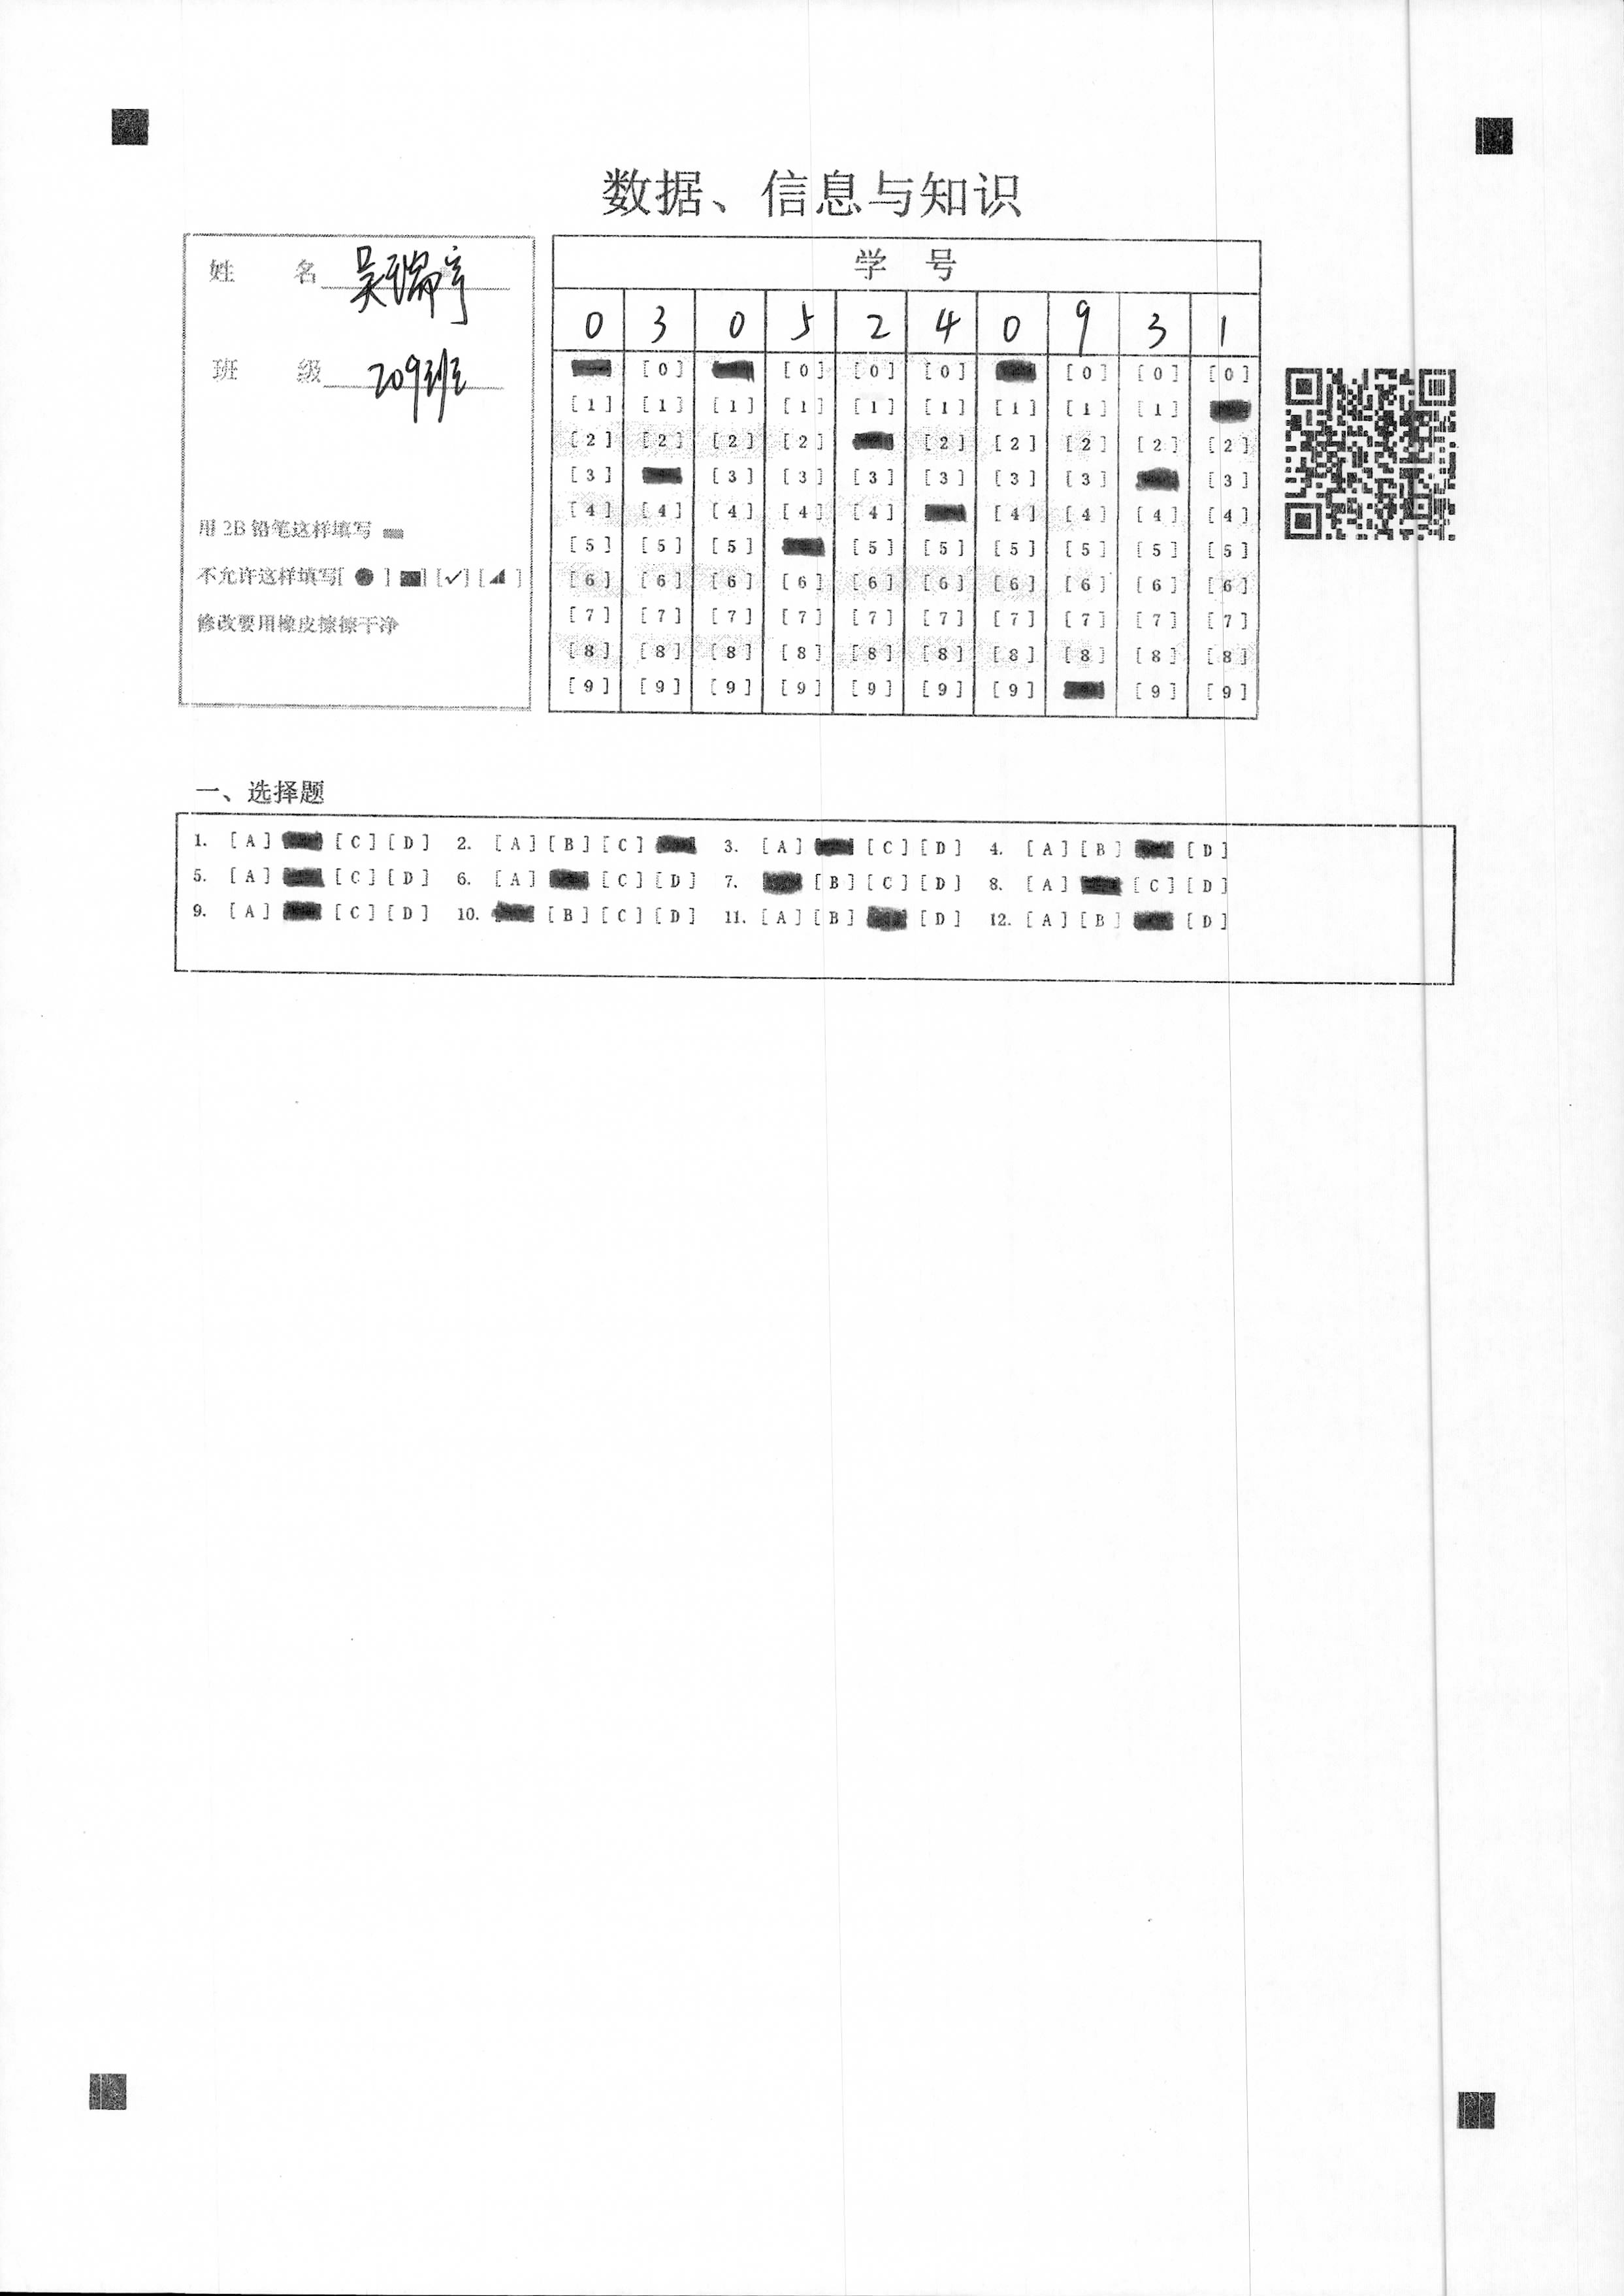 数据、信息与知识
姓 名 吴瑞亨
班 级 209班
用 2B 铅笔这样填写
不允许这样填写[ ● ] [■] [✓] [◢ ]
修改要用橡皮擦擦干净
学 号
0 3 0 5 2 4 0 9 3 1
[0] [0] [0] [0] [0] [0] [0]
[1] [1] [1] [1] [1] [1] [1] [1] [1]
[2] [2] [2] [2] [2] [2] [2] [2] [2]
[3] [3] [3] [3] [3] [3] [3] [3]
[4] [4] [4] [4] [4] [4] [4] [4] [4]
[5] [5] [5] [5] [5] [5] [5] [5] [5]
[6] [6] [6] [6] [6] [6] [6] [6] [6] [6]
[7] [7] [7] [7] [7] [7] [7] [7] [7] [7]
[8] [8] [8] [8] [8] [8] [8] [8] [8] [8]
[9] [9] [9] [9] [9] [9] [9] [9] [9]
一、选择题
1. [A] [C] [D] 2. [A] [B] [C] 3. [A] [C] [D] 4. [A] [B] [D]
5. [A] [C] [D] 6. [A] [C] [D] 7. [B] [C] [D] 8. [A] [C] [D]
9. [A] [C] [D] 10. [B] [C] [D] 11. [A] [B] [D] 12. [A] [B] [D]